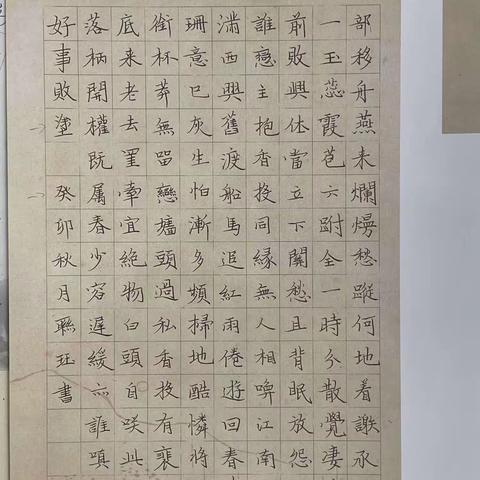 部移舟燕未爛熳愁蹤何地看謝承
一玉蕊霞苞六跗全一時分散覺凄
前敗興休當立下闌愁且背眠放怨
誰戀主抱香投同縁無人相江南
滿西興舊渡船馬追紅雨倦遊回春
珊意已灰生怕漸多頻掃地酷憐將
銜杯莽無留戀牆頭過私香投有裴
底来老去罣牽宜絶物白頭自咲此
落柄開權既属春少容遲緩亦誰嗔
好事敗塗 癸卯秋月珏書